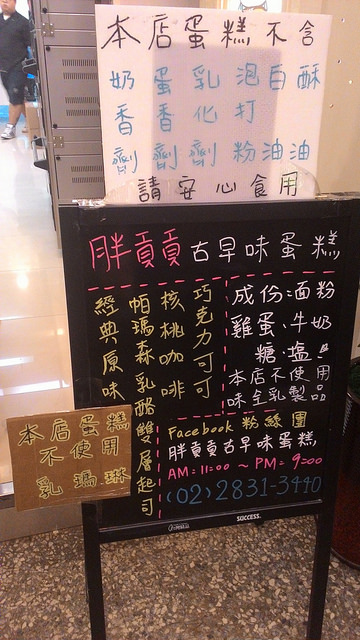 本店蛋糕不含
奶香劑
蛋香劑
乳化劑
泡打粉
白油
酥油
請安心食用
胖貢貢古早味蛋糕
巧克力可可
核桃咖啡
帕瑪森乳酪雙層起司
經典原味
成份:面粉
雞蛋、牛奶
糖、塩!
本店不使用
味全乳製品
本店蛋糕
不使用
乳瑪琳
Facebook 粉絲團
胖貢貢古早味蛋糕
AM:11:00 ~ PM:9:00
(02)2831-3440
SUCCESS.